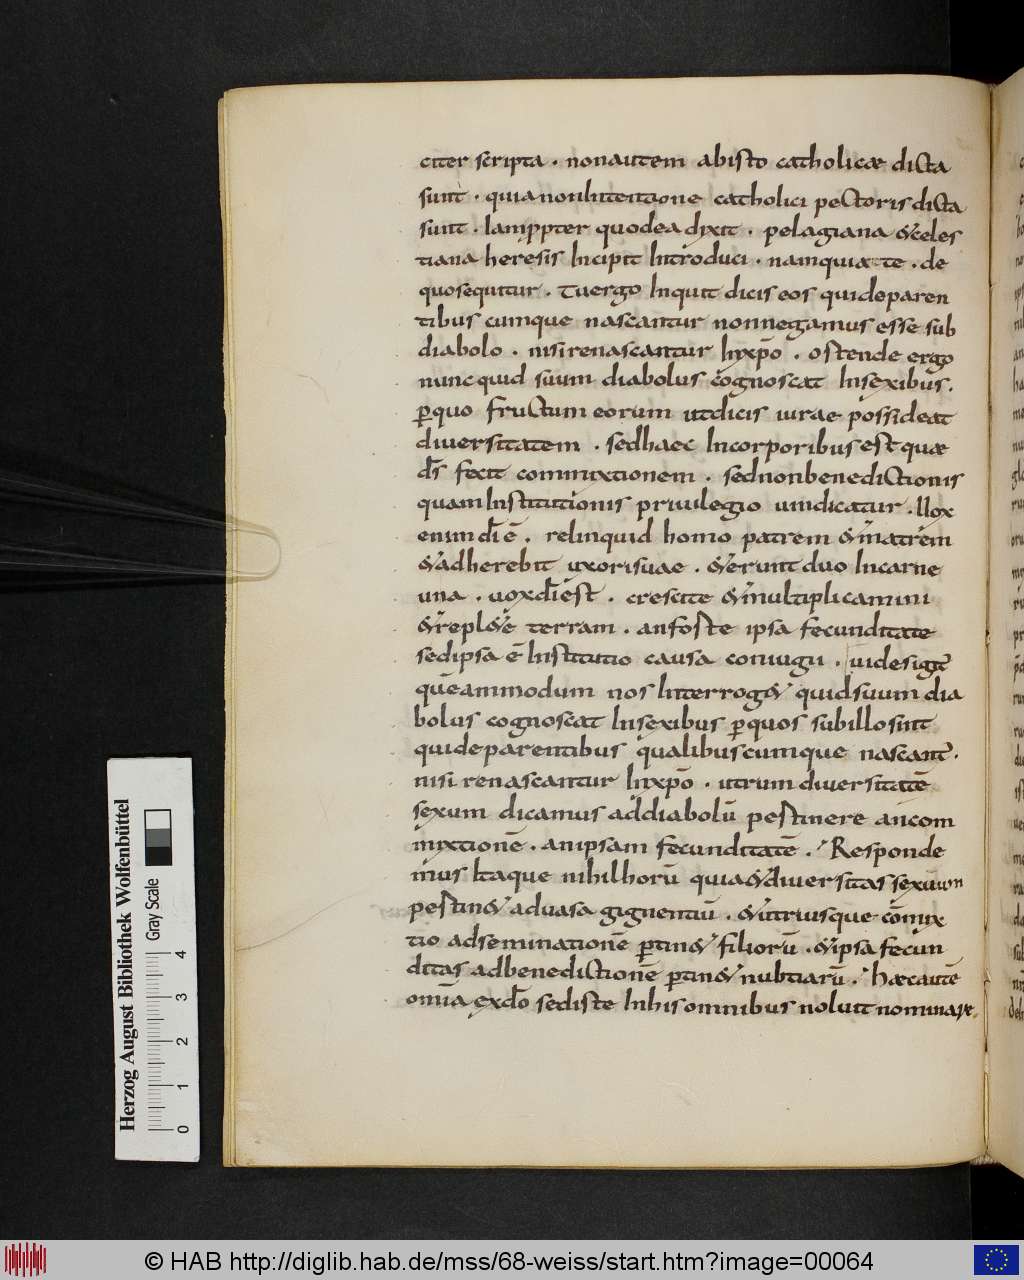 citer scripta . nonautem abisto catholicae dicta
sunt . quianonintentione catholici pectoris dicta
sunt . lamppter quodea dixit . pelagiana &celes
tiana heresis Incipit Introduci . namquia te . de
quosequitur . Tuergo Inquit dicis eos quideparen
tibus cumque nascantur nonnegamus esse sub
diabolo . nisirenascantur Inxpō . ostende ergo
nunc quid suum diabolus cognoscat Insexibus .
ꝑquo fructum eorum utdicis iurae possideat
diuersitatem . sedhaec Incorporibus est quae
d̄s fecit commixtionem . sednonbenedictionis
quam Institutionis priuilegio uindicatur . Uox
enim dī ē . relinquid homo patrem &matrem
&adherebit uxorisuae . &erunt duo Incarne
una . uoxdīest . crescite &multiplicamini
&repl&e terram . anforte ipsa fecunditate
sedipsa ē Institutio causa coniugii . uidesigit̄
quēammodum nos Interrog& quidsuum dia
bolus cognoscat Insexibus ꝑquos subillosint
quideparentibus qualibuscumque nascant̄ .
nisi renascantur Inxpō . utrum diuersitatē
sexum dicamus addiabolū pertinere ancom
mixtionē . anipsam fecunditatē . Responde
mus Itaque nihilhorū quia&diuersitas sexuum
pertin& aduasa gignentiū . &utriusque cōmix
tio adseminationē ꝑtin& filiorū . &ipsa fecun
ditas adbenedictionē ꝑtin& nubtiarū . Haecautē
omīa exdō sediste Inhis omnibus noluit nominare
Herzog August Bibliothek Wolfenbüttel
Gray Scale
0 1 2 3 4
© HAB http://diglib.hab.de/mss/68-weiss/start.htm?image=00064